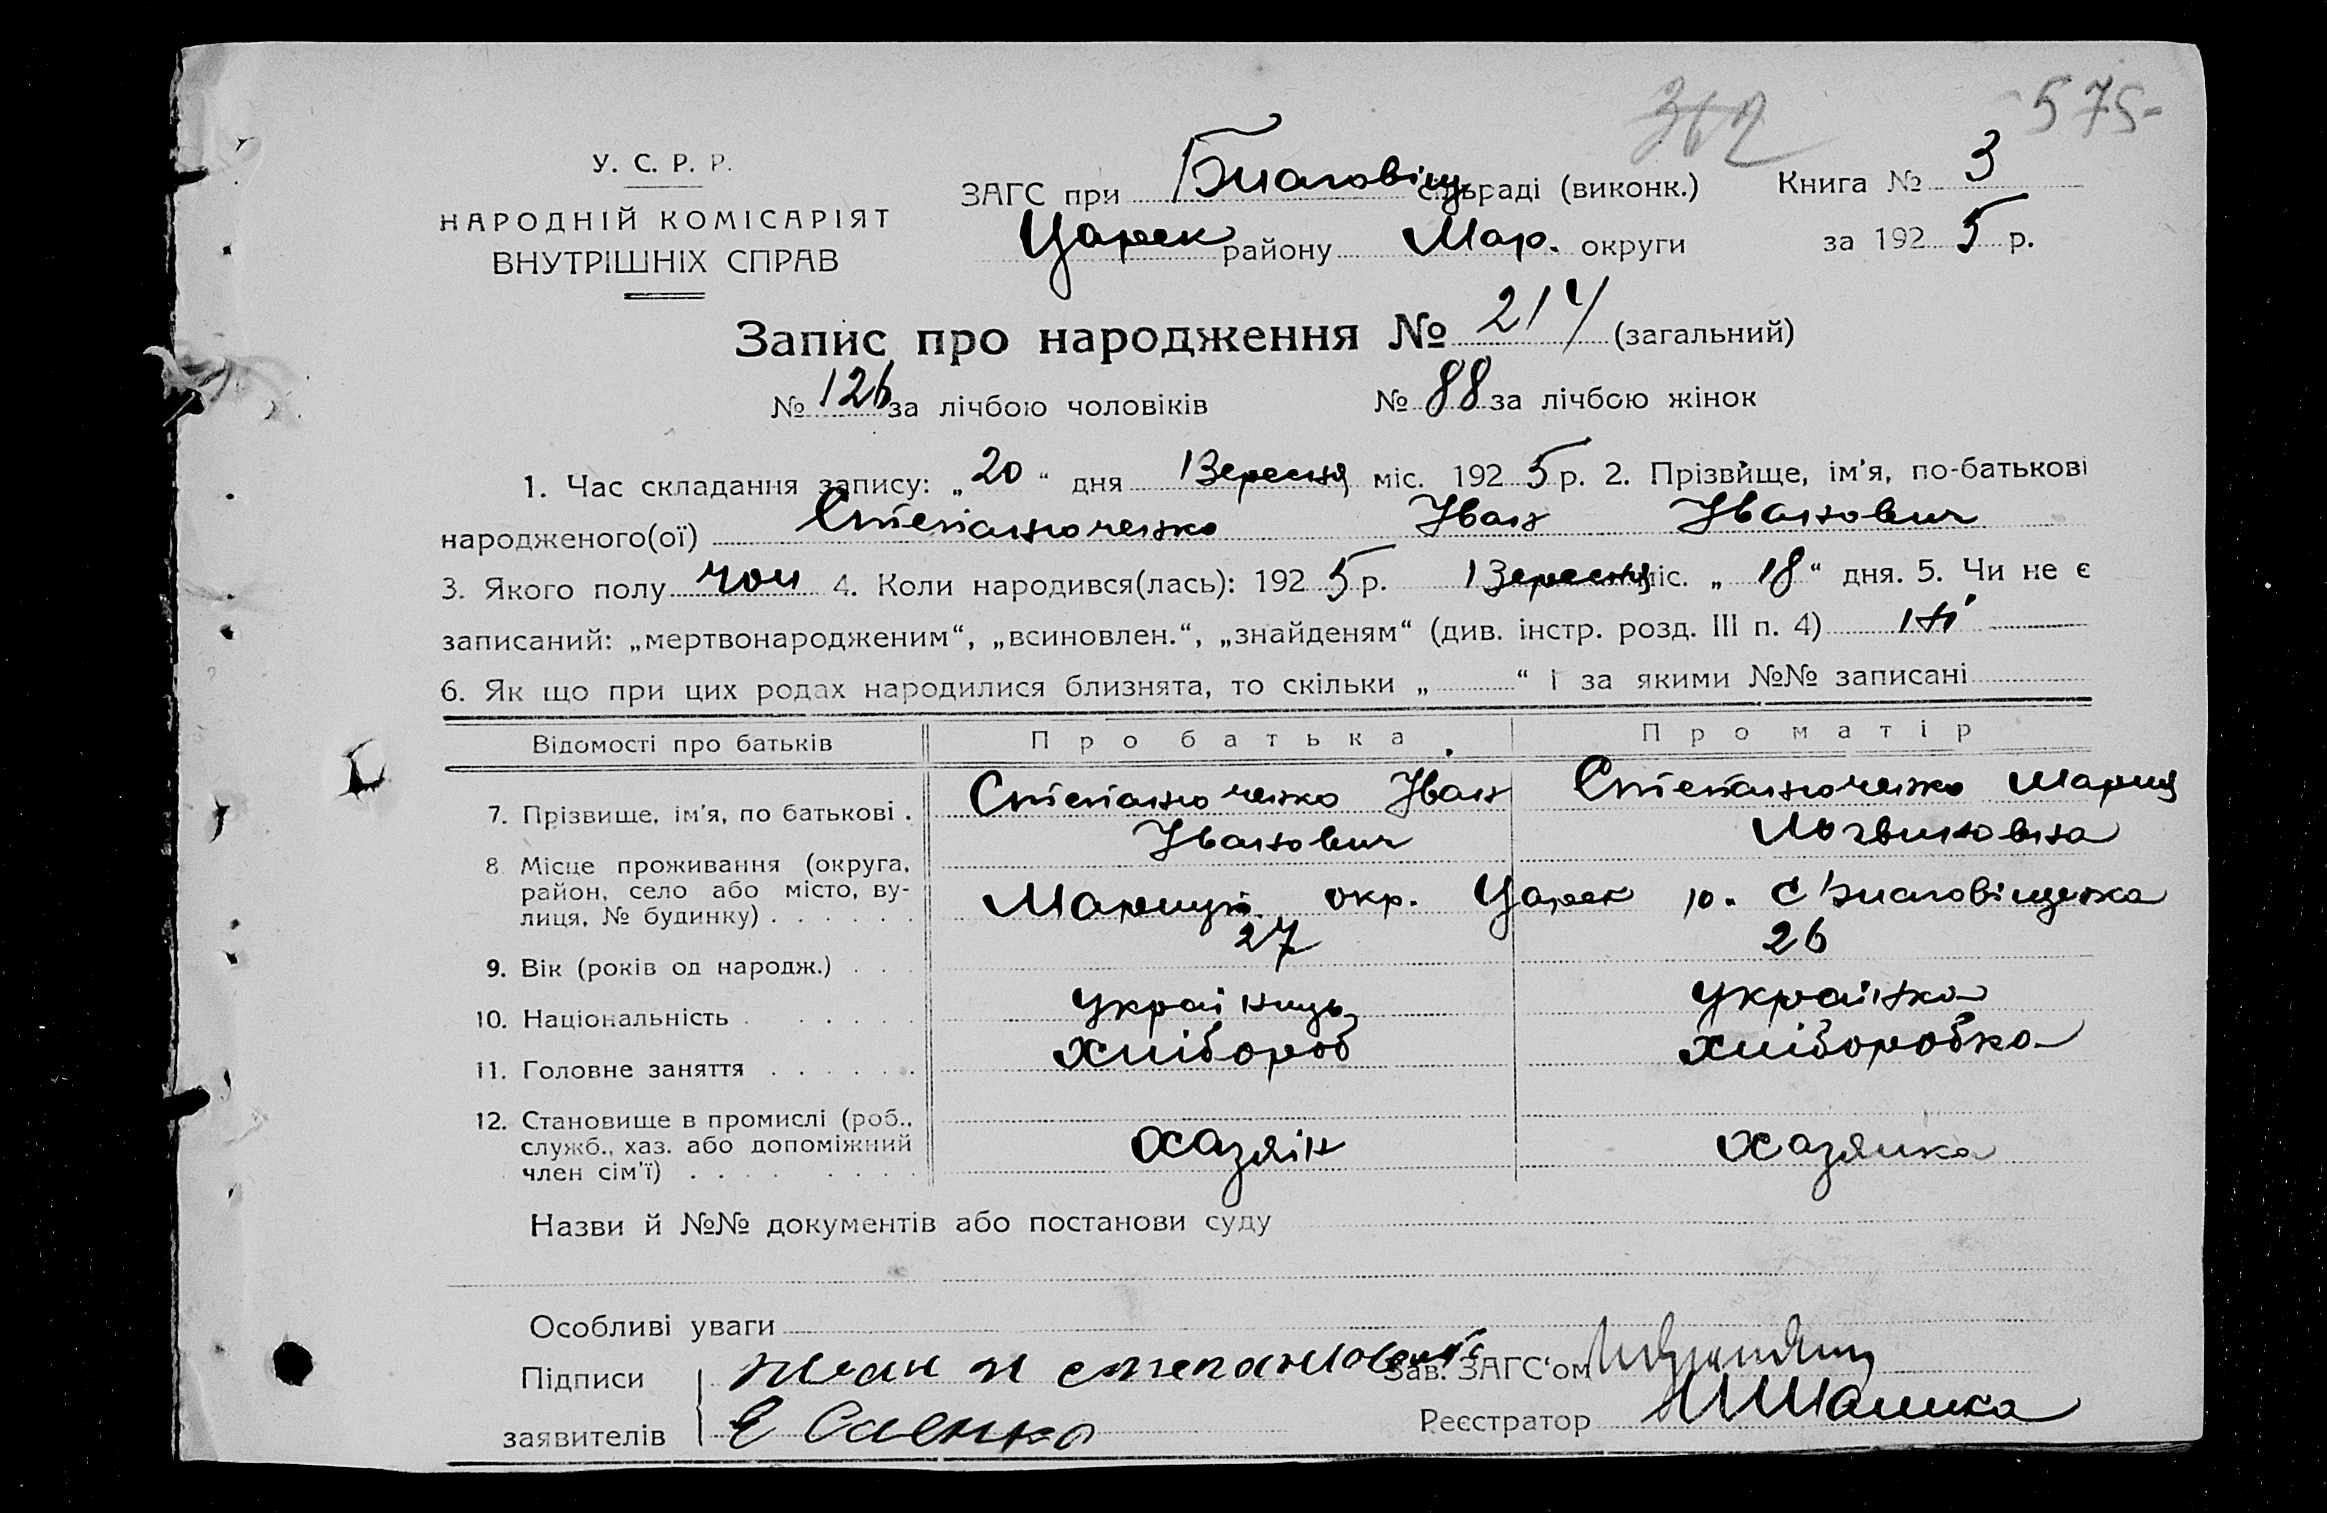 575
362
У. С. Р. Р.
НАРОДНІЙ КОМІСАРІЯТ
ВНУТРІШНІХ СПРАВ
ЗАГС при Благовіщ сільраді (виконк.) Книга № 3
Царек району Мар. округи за 1925 р.
Запис про народження № 214 (загальний)
№ 126 за лічбою чоловіків № 88 за лічбою жінок
1. Час складання запису: „20“ дня Вересня міс. 1925 р. 2. Прізвище, ім’я, по-батькові
народженого(ої) Степанюченко Іван Іванович
3. Якого полу чол 4. Коли народився(лась): 1925 р. Вересня міс. „18“ дня. 5. Чи не є
записаний: „мертвонародженим“, „всиновлен.“, „знайденям“ (див. інстр. розд. III п. 4) ні
6. Як що при цих родах народилися близнята, то скільки „ “ і за якими №№ записані
Відомості про батьків Про батька Про матір
7. Прізвище, ім’я, по батькові . Степанюченко Іван Іванович Степанюченко Мария Логвиновна
8. Місце проживання (округа, район, село або місто, вулиця, № будинку) . . . . . . Мариуп. окр. Царек р. с Благовіщенка
9. Вік (років од народж.) . . . 27 26
10. Національність . . . . . . українець українка
11. Головне заняття . . . . . . хлібороб хліборобка
12. Становище в промислі (роб., служб., хаз. або допоміжний член сім’ї) . . . . . . . . хазяін хазяика
Назви й №№ документів або постанови суду
Особливі уваги
Підписи Зав. ЗАГС‘ом
заявителів Е Саенко Реєстратор